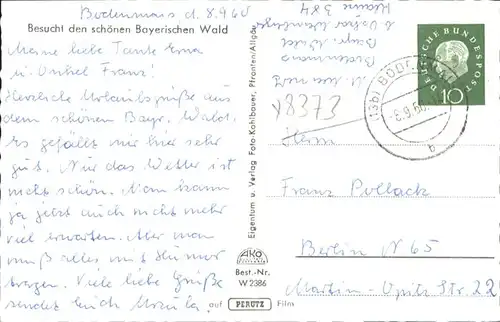 Bodenmais d. 8.9.60
Besucht den schönen Bayerischen Wald
Meine liebe Tante Erna
u. Onkel Franz!
Herzliche Urlaubsgrüße aus
dem schönen Bayr. Wald.
Es gefällt mir hier sehr
gut. Nur das Wetter ist
nicht schön. Man kann
ja jetzt auch nicht mehr
viel erwarten. Aber man
muß alles mit Humor
tragen. Viele liebe Grüße
sendet Euch Ursula.
Eigentum u. Verlag Foto-Kohlbauer, Pfronten/Allgäu
AKO
Best.-Nr.
W 2386
auf PERUTZ Film
Bodenmais
Bayr. Wald
384
y8373
DEUTSCHE BUNDESPOST
10
(13b) BODENMAIS
-8.9.60
b
Herrn
Franz Pollack
Berlin N 65
Martin-Opitz Str. 22